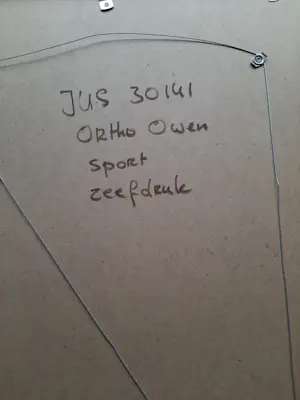 JUS 30141
Ortho Owen
sport
zeefdruk